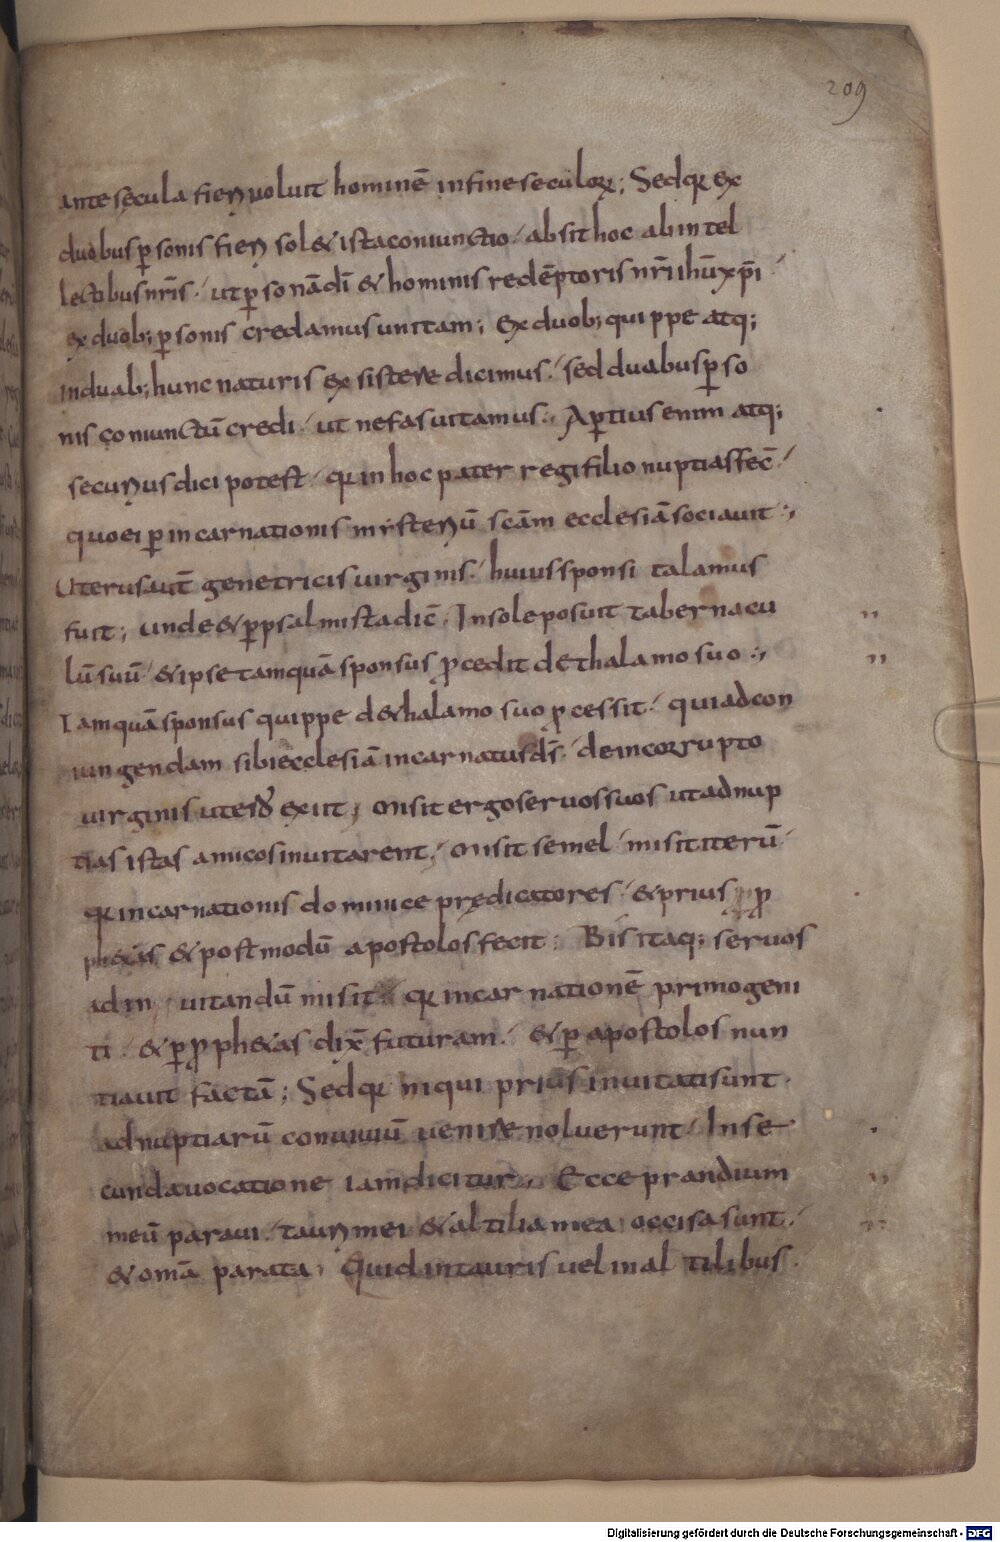 209
ante sęcula fieri uoluit hominē in fine seculoꝝ; Sed qꝛ ex
duobus ꝑsonis fieri sol& ista coniunctio. absit hoc ab intel
lectibus nr̄is. ut ꝑsonā dī & hominis redēptoris nr̄i ihū xp̄i
ex duob; ꝑsonis credamus unitam; Ex duob; quippe atq;
in duab; hunc naturis existere dicimus. sed duabus ꝑso
nis coniunctū credi. ut nefas uitamus. Aꝑtius enim atq;
securius dici potest. qꝛ in hoc pater regi filio nuptias fec̄.
quo ei ꝑ incarnationis mysteriū sc̄am ecclesiā sociauit.
Uterus aut̄ genetricis uirginis. huius sponsi talamus
fuit; unde & ꝑ psalmista dic̄. In sole posuit tabernacu
lū suū. & ipse tamquā sponsus ꝓcedit de thalamo suo.
Tamquā sponsus quippe de thalamo suo ꝓcessit. qui ad con
iungendam sibi ecclesiā incarnatus d̄s. de incorrupto
uirginis utero exiit; Misit ergo seruos suos ut ad nup
tias istas amicos inuitarent. Misit semel. misit iterū.
qꝛ incarnationis dominice prędicatores. & prius ꝓ
ph&as & postmodū apostolos fecit; Bis itaq; seruos
ad in uitandū misit qꝛ incarnationē primogeni
ti. & ꝑ ꝓph&as dix̄ futuram. & ꝑ apostolos nun
tiauit factā; Sed qꝛ hi qui prius inuitati sunt.
ad nuptiarū conuiuiū uenire noluerunt. In se
cunda uocatione iam dicitur. Ecce prandium
meū paraui. tauri mei & altilia mea occisa sunt.
& om̄a parata; Quid in tauris uel in altilibus.
Digitalisierung gefördert durch die Deutsche Forschungsgemeinschaft - DFG